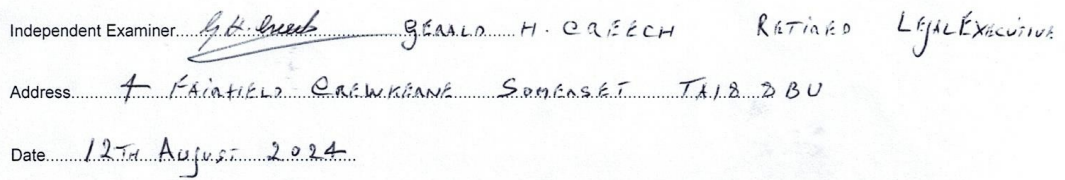 Independent Examiner.... G.H. Creech GERALD H. CREECH RETIRED LEGAL EXECUTIVE
Address.... FAIRFIELD CREWKERNE SOMERSET TA18 8BU
Date.... 12TH AUGUST 2024